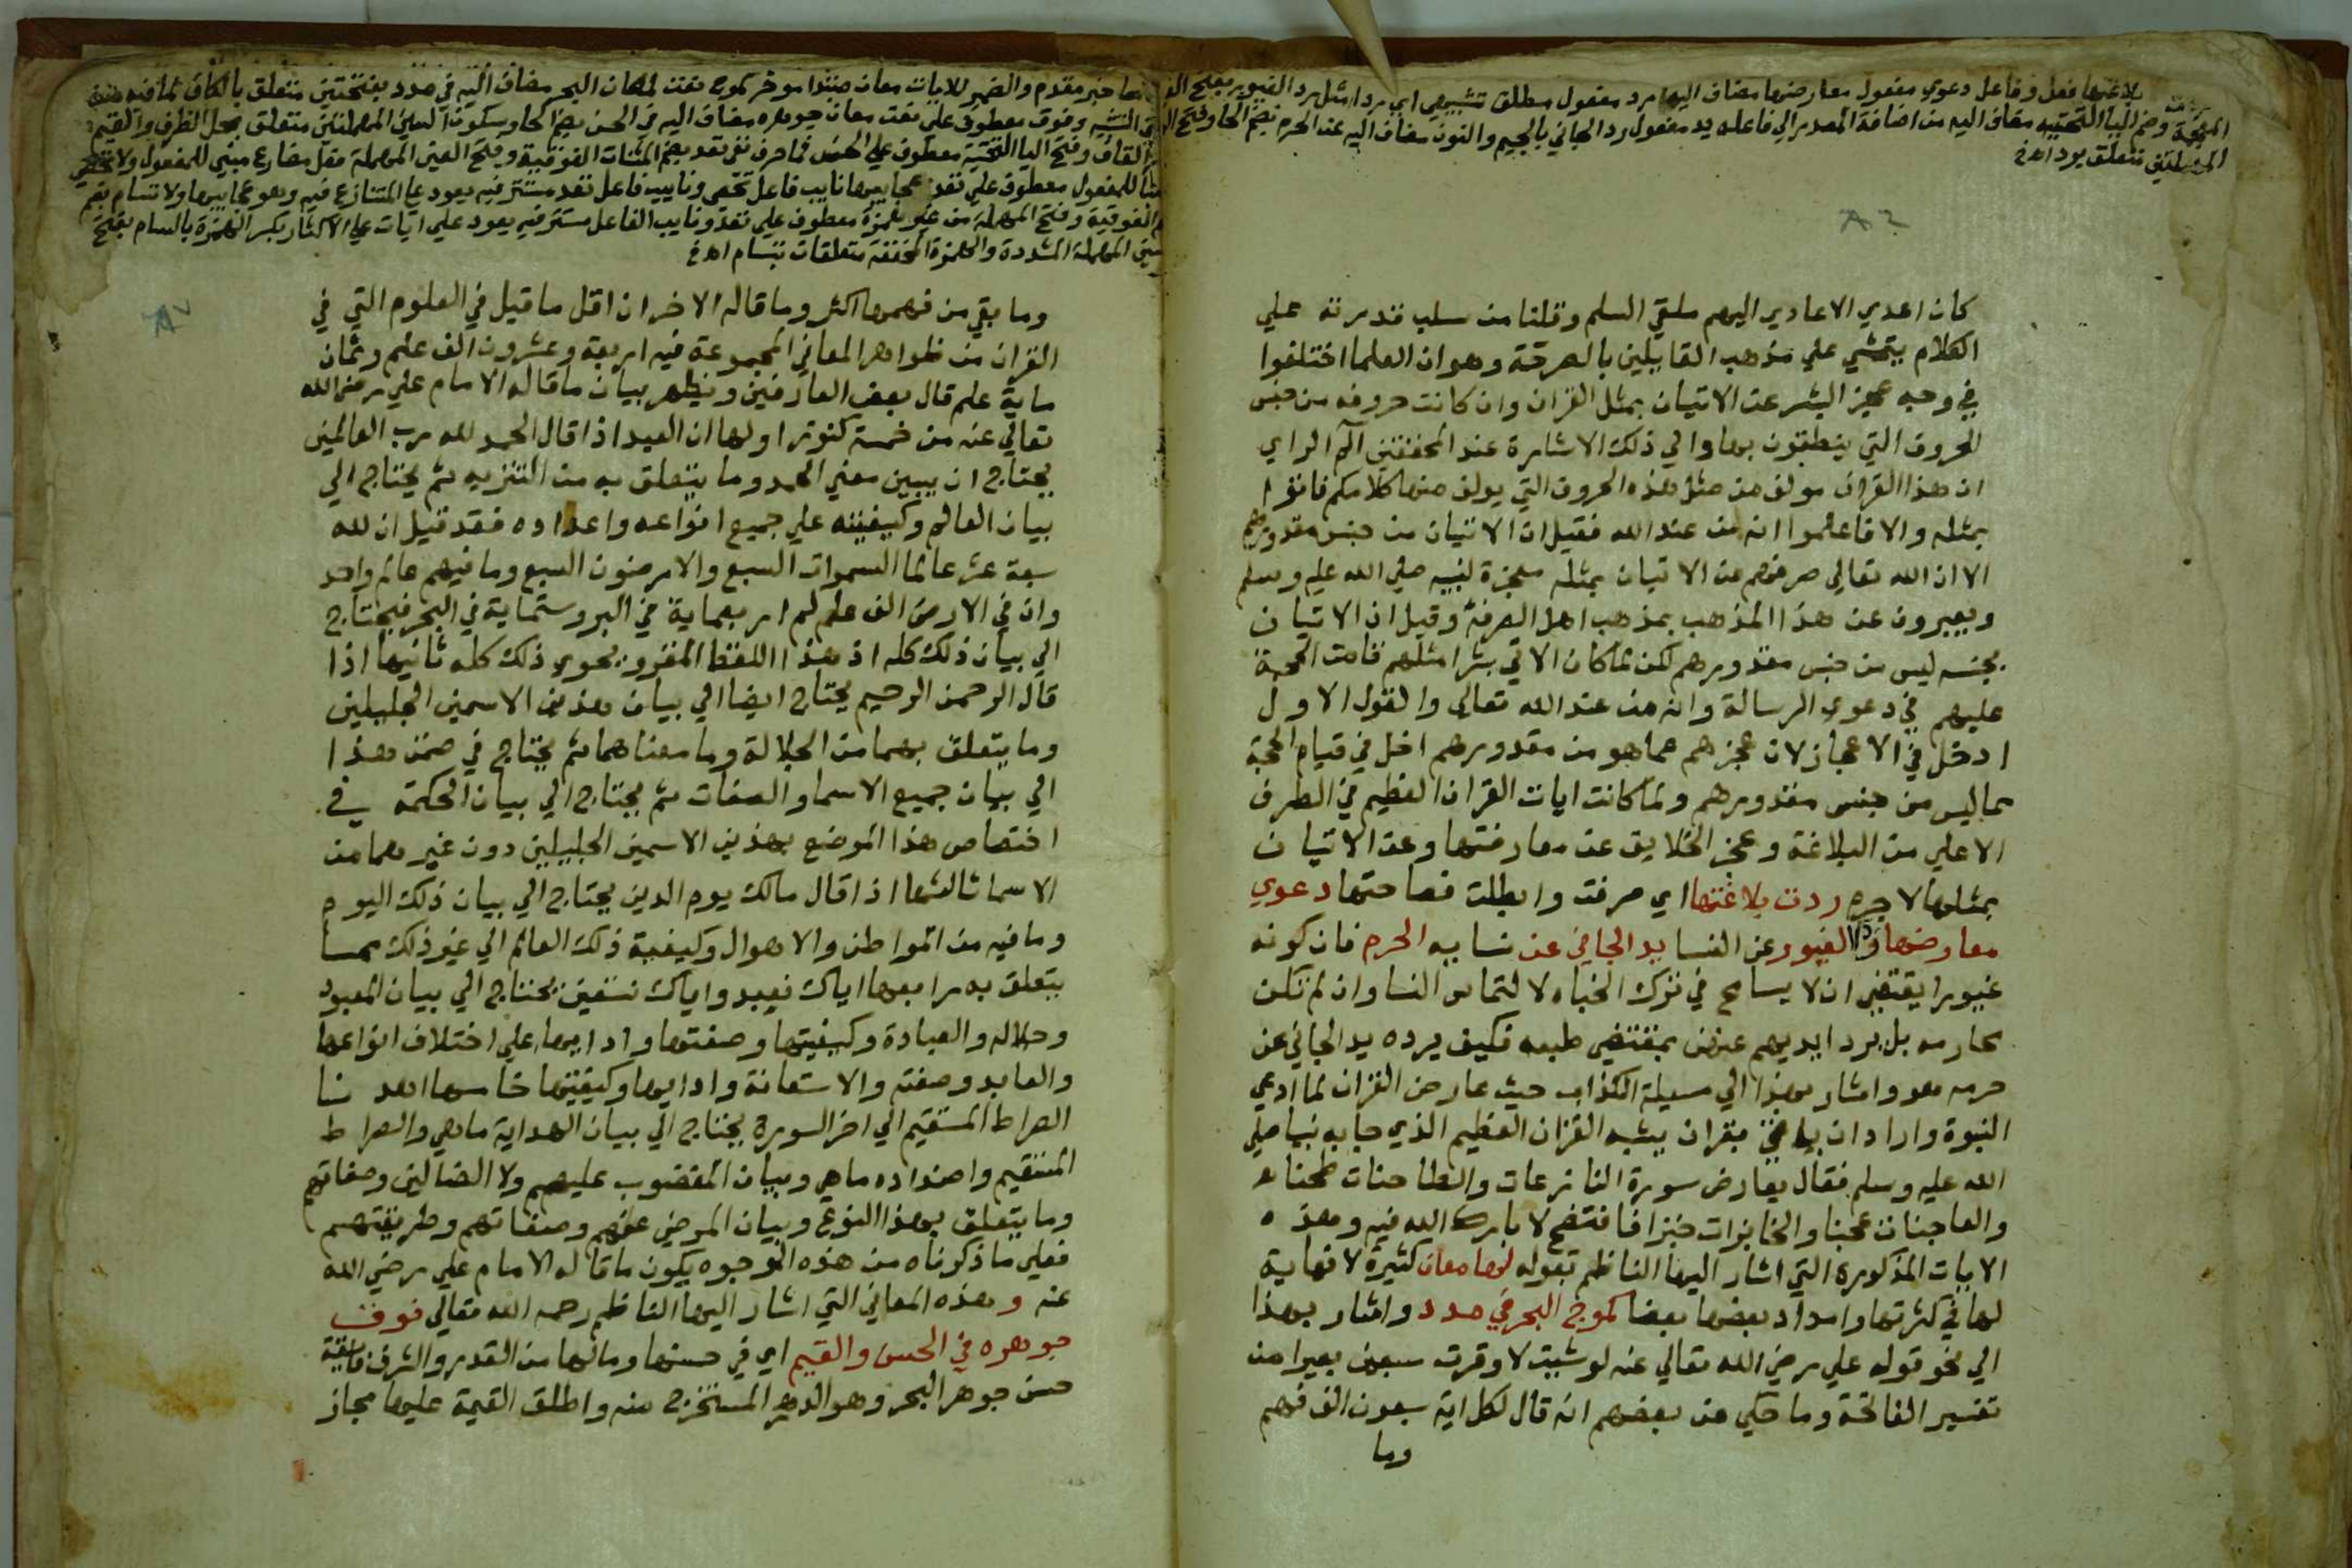 ردت بلاغتها فعل وفاعل دعوي مفعول معارضها مضاف اليها رد مفعول مطلق تشبيهي اي ردا مثل رد الغيور بفتح الغين
المعجمة وضم اليا التحتيه مضاف اليه من اضافة المصدر الي فاعله يد مفعول رد الجاني بالجيم والنون مضاف اليه عن الحرم بضم الحا وفتح الرا
المهملتين متعلق برد اهخ
٨٦
كان اعدي الاعادي اليهم ملقي السلم وقلنا من سلب قدرته علي
الكلام يتمشي علي مذهب القايلين بالصرفة وهو ان العلما اختلفوا
في وجه عجز البشر عن الاتيان بمثل القران وان كانت حروفه من جنس
الحروف التي ينطقون بها والي ذلك الاشارة عند المحققين الم الراي
ان هذا القران مولف من مثل هذه الحروف التي يولف منها كلامكم فاتوا
بمثله والا فاعلموا انه من عند الله فقيل ان الاتيان من جنس مقدورهم
الا ان الله تعالي صرفهم عن الاتيان بمثله معجزة لنبيه صلي الله عليه وسلم
ويعبرون عن هذا المذهب بمذهب اهل الصرفة وقيل ان الاتيان
بجنسه ليس من جنس مقدورهم لكن لما كان الاتي بشرا مثلهم قامت الحجة
عليهم في دعوي الرسالة وانه من عند الله تعالي والقول الاول
ادخل في الاعجاز لان عجزهم عما هو من مقدورهم ادخل في قيام الحجة
مما ليس من جنس مقدورهم ولما كانت ايات القران العظيم في الطرف
الاعلي من البلاغة وعجز الخلايق عن معارضتها وعن الاتيان
بمثلها لا جرم ردت بلاغتها اي صرفت وابطلت فصاحتها دعوي
معارضها رد الغيور عن النسا يد الجاني عن نسايه الحرم فان كونه
غيورا يقتضي ان لا يسامح في ترك الجناه لالتماس النسا وان لم تكن
محارمه بل يرد ايديهم عنهن بمقتضي طبعه فكيف يرده يد الجاني عن
حرمه هو واشار بهذا الي مسيلة الكذاب حيث عارض القران لما ادعي
النبوة واراد ان ياتي بقران يشبه القران العظيم الذي جا به نبينا صلي
الله عليه وسلم فقال يعارض سورة النازعات والطاحنات طحنا
والعاجنات عجنا والخابزات خبزا فافتضح لا بارك الله فيه وهذه
الايات المذكورة التي اشار اليها الناظم بقوله لها معان كثيرة لا نهاية
لها في كثرتها وامداد بعضها بعضا كموج البحر في مدد واشار بهذا
الي نحو قوله علي رضي الله تعالي عنه لو شيت لاوقرت سبعين بعيرا من
تفسير الفاتحة وما حكي عن بعضهم انه قال لكل اية سبعون الف فهم
وما
لها خبر مقدم والضمير للايات معان مبتدا موخر كموج نعت لمعان البحر مضاف اليه في مدد بفتحتين متعلق بالكاف لما فيه من
معني التشبيه وفوق معطوف علي نعت معان جوهره مضاف اليه في الحسن بضم الحا وسكون السين المهملتين متعلق بمحل الظرف والقيم
القاف وفتح اليا التحتية معطوف علي الحسن فما حرف نفي تعد بضم المثنات الفوقية وفتح العين المهملة فعل مضارع مبني للمفعول ولا تحصي
للمفعول معطوف علي تعد عجايبها نايب فاعل تحصي ونايب فاعل تعد مستتر فيه يعود علي المتنازع فيه وهو عجايبها ولا تسام بضم
الفوقية وفتح المهملة من غير همزة معطوف علي تعد ونايب الفاعل مستتر فيه يعود علي ايات علي الاكثار بكسر الهمزة بالسام بفتح
السين المهملة المشددة والهمزة المخففة متعلقات بتسام اهخ
٨٧
وما بقي من فهمها اكثر وما قاله الاخر ان اقل ما قيل في العلوم التي في
القران من ظواهر المعاني المجموعة فيه اربعة وعشرون الف علم وثمان
ماية علم قال بعض العارفين ويظهر بيان ما قاله الامام علي رضي الله
تعالي عنه من خمسة كنوز اولها ان العبد اذا قال الحمد لله رب العالمين
يحتاج ان يبين معني الحمد وما يتعلق به من التنزيه ثم يحتاج الي
بيان العالم وكيفيته علي جميع انواعه واعداده فقد قيل ان لله
سبعة عشر عالما السموات السبع والارضون السبع وما فيهم عالم واحد
وان في الارض الف علم اربعماية في البر وستماية في البحر فيحتاج
الي بيان ذلك كله اذ هذا اللفظ المقرو يحوي ذلك كله ثانيها اذا
قال الرحمن الرحيم يحتاج ايضا الي بيان هذين الاسمين الجليلين
وما يتعلق بهما من الجلالة وما معناهما ثم يحتاج في ضمن هذا
الي بيان جميع الاسما والصفات ثم يحتاج الي بيان الحكمة في
اختصاص هذا الموضع بهذين الاسمين الجليلين دون غيرهما من
الاسما ثالثها اذا قال مالك يوم الدين يحتاج الي بيان ذلك اليوم
وما فيه من المواطن والاهوال وكيفية ذلك العالم الي غير ذلك مما
يتعلق به رابعها اياك نعبد واياك نستعين يحتاج الي بيان المعبود
وجلاله والعبادة وكيفيتها وصفتها وادابها علي اختلاف انواعها
والعابد وصفته والاستعانة وادابها وكيفيتها خامسها اهدنا
الصراط المستقيم الي اخر السورة يحتاج الي بيان الهداية ما هي والصراط
المستقيم واضداده ما هي وبيان المغضوب عليهم ولا الضالين وصفاتهم
وما يتعلق بهذا النوع وبيان المرضي عنهم وصفاتهم وطريقتهم
فعلي ما ذكرناه من هذه الوجوه يكون ما قاله الامام علي رضي الله
عنه وهذه المعاني التي اشار اليها الناظم رحمه الله تعالي فوق
جوهره في الحسن والقيم اي في حسنها ومالها من القدر والشرف فايقة
حسن جوهر البحر وهو الدر المستخرج منه واطلق القيمة عليها مجاز